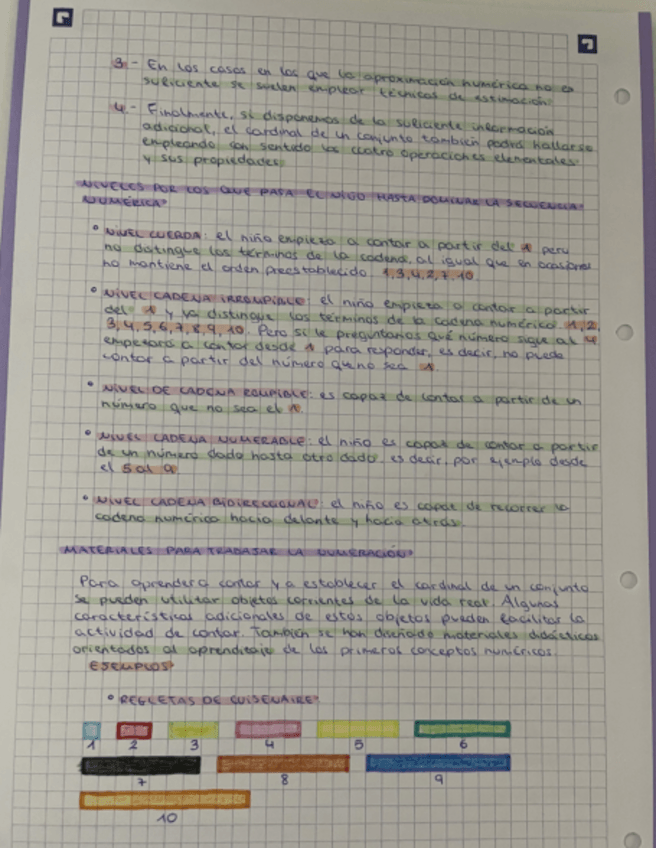 3.- En los casos en los que la aproximación numérica no es
suficiente se suelen emplear técnicas de estimación.
4.- Finalmente, si disponemos de la suficiente información
adicional, el cardinal de un conjunto también podrá hallarse
empleando con sentido las cuatro operaciones elementales
y sus propiedades.
NIVELES POR LOS QUE PASA EL NIÑO HASTA DOMINAR LA SECUENCIA
NUMÉRICA:
• NIVEL CUERDA: el niño empieza a contar a partir del 1 pero
no distingue los términos de la cadena, al igual que en ocasiones
no mantiene el orden preestablecido. 1,3,4,2,7,10.
• NIVEL CADENA IRROMPIBLE: el niño empieza a contar a partir
del 1 y ya distingue los términos de la cadena numérica. 1,2,
3,4,5,6,7,8,9,10. Pero si le preguntamos qué número sigue al 4
empezará a contar desde 1 para responder, es decir, no puede
contar a partir del número que no sea 1.
• NIVEL DE CADENA ROMPIBLE: es capaz de contar a partir de un
número que no sea el 1.
• NIVEL CADENA NUMERABLE: el niño es capaz de contar a partir
de un número dado hasta otro dado, es decir, por ejemplo desde
el 5 al 9.
• NIVEL CADENA BIDIRECCIONAL: el niño es capaz de recorrer la
cadena numérica hacia delante y hacia atrás.
MATERIALES PARA TRABAJAR LA NUMERACIÓN:
Para aprender a contar y a establecer el cardinal de un conjunto
se pueden utilizar objetos corrientes de la vida real. Algunas
características adicionales de estos objetos pueden facilitar la
actividad de contar. También se han diseñado materiales didácticos
orientados al aprendizaje de los primeros conceptos numéricos.
EJEMPLOS:
• REGLETAS DE CUISENAIRE:
1 2 3 4 5 6
7 8 9
10